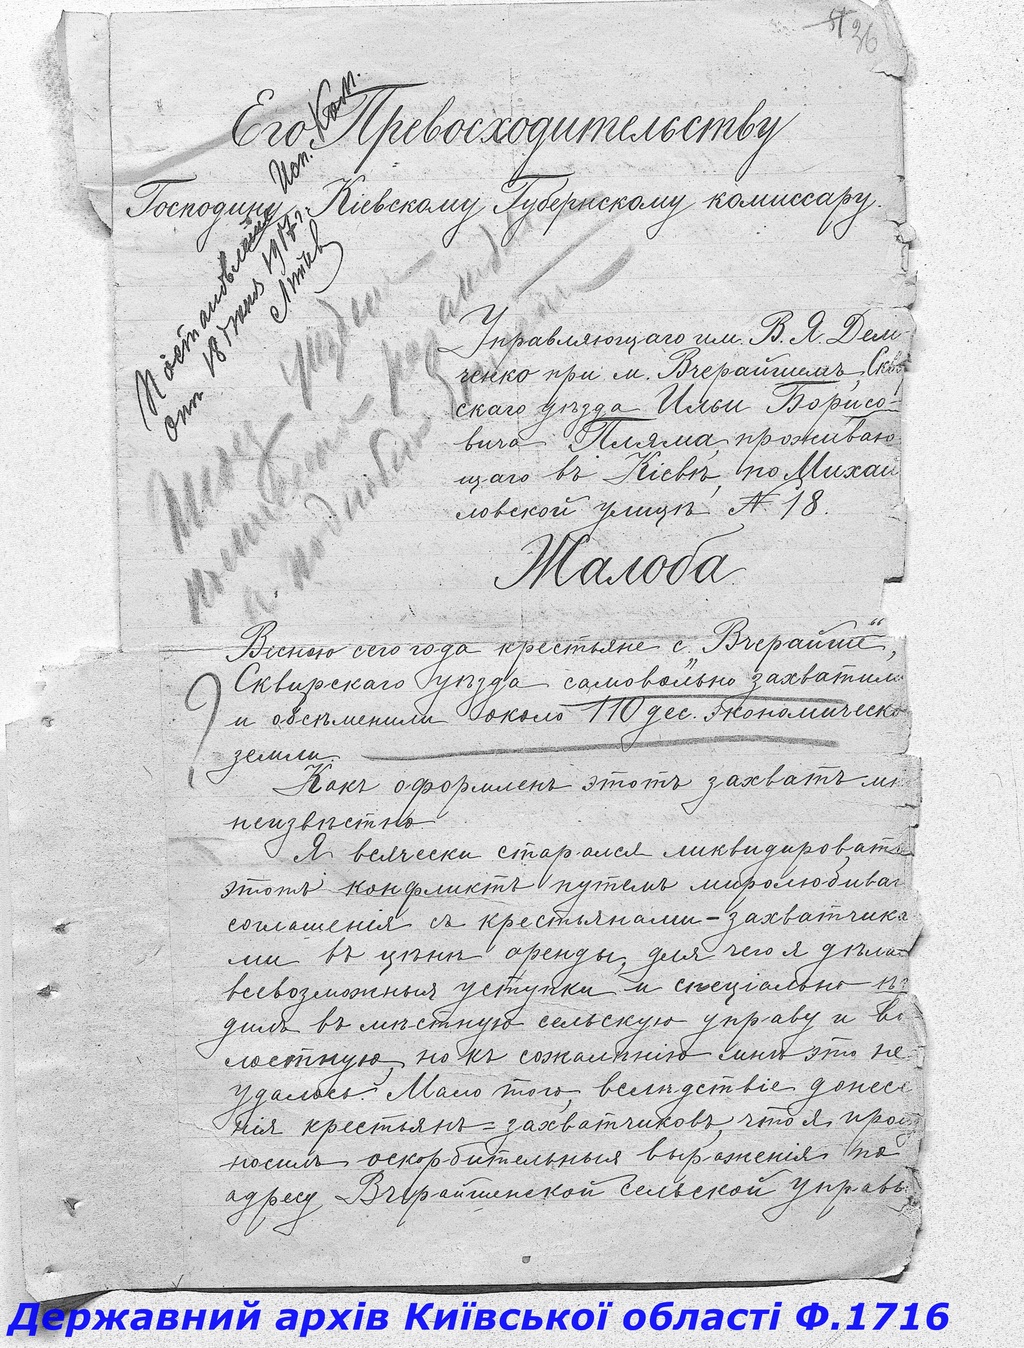 36
Его Превосходительству
Господину Кіевскому Губернскому комиссару.
Постановленіе Исп. Ком.
отъ 18 Іюня 1917 г.
Управляющаго им. В. Я. Дем
ченко при м. Вчерайшемъ, Скв
скаго уѣзда Ильи Борисо-
вича Пляма, проживаю
щаго въ Кіевѣ, по Михай
ловской улицѣ, № 18.
Жалоба
Весною сего года крестьяне с. „Вчерайше“,
Сквирскаго уѣзда самовольно захватили
и обсѣменили около 110 дес. экономическо
земли.
Какъ оформленъ этотъ захватъ мн
неизвѣстно.
Я всячески старался ликвидировать
этотъ конфликтъ путемъ миролюбива
соглашенія съ крестьянами-захватчика
ми въ цѣнѣ аренды, для чего я дѣла
всевозможныя уступки и спеціально ѣз
дилъ въ мѣстную сельскую управу и во
лостную, но къ сожалѣнію мнѣ это не
удалось. Мало того, вслѣдствіе донесе
нія крестьянъ=захватчиковъ, что я произ
носилъ оскорбительныя выраженія по
адресу Вчерайшенской сельской управы
Державний архів Київської області Ф.1716